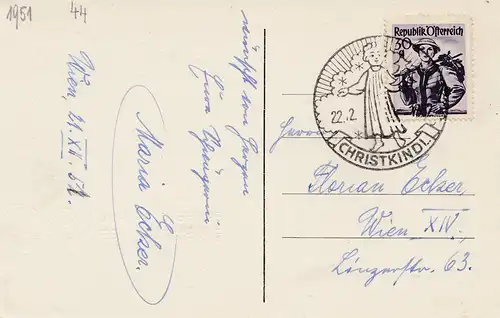 1951
44
Wien, 21. XII. 51.
wünscht von Herzen
Eure
Maria Ecker.
30 g
Republik Österreich
22.2.
CHRISTKINDL
Herrn
Florian Ecker
Wien XIV.
Linzerstr. 63.